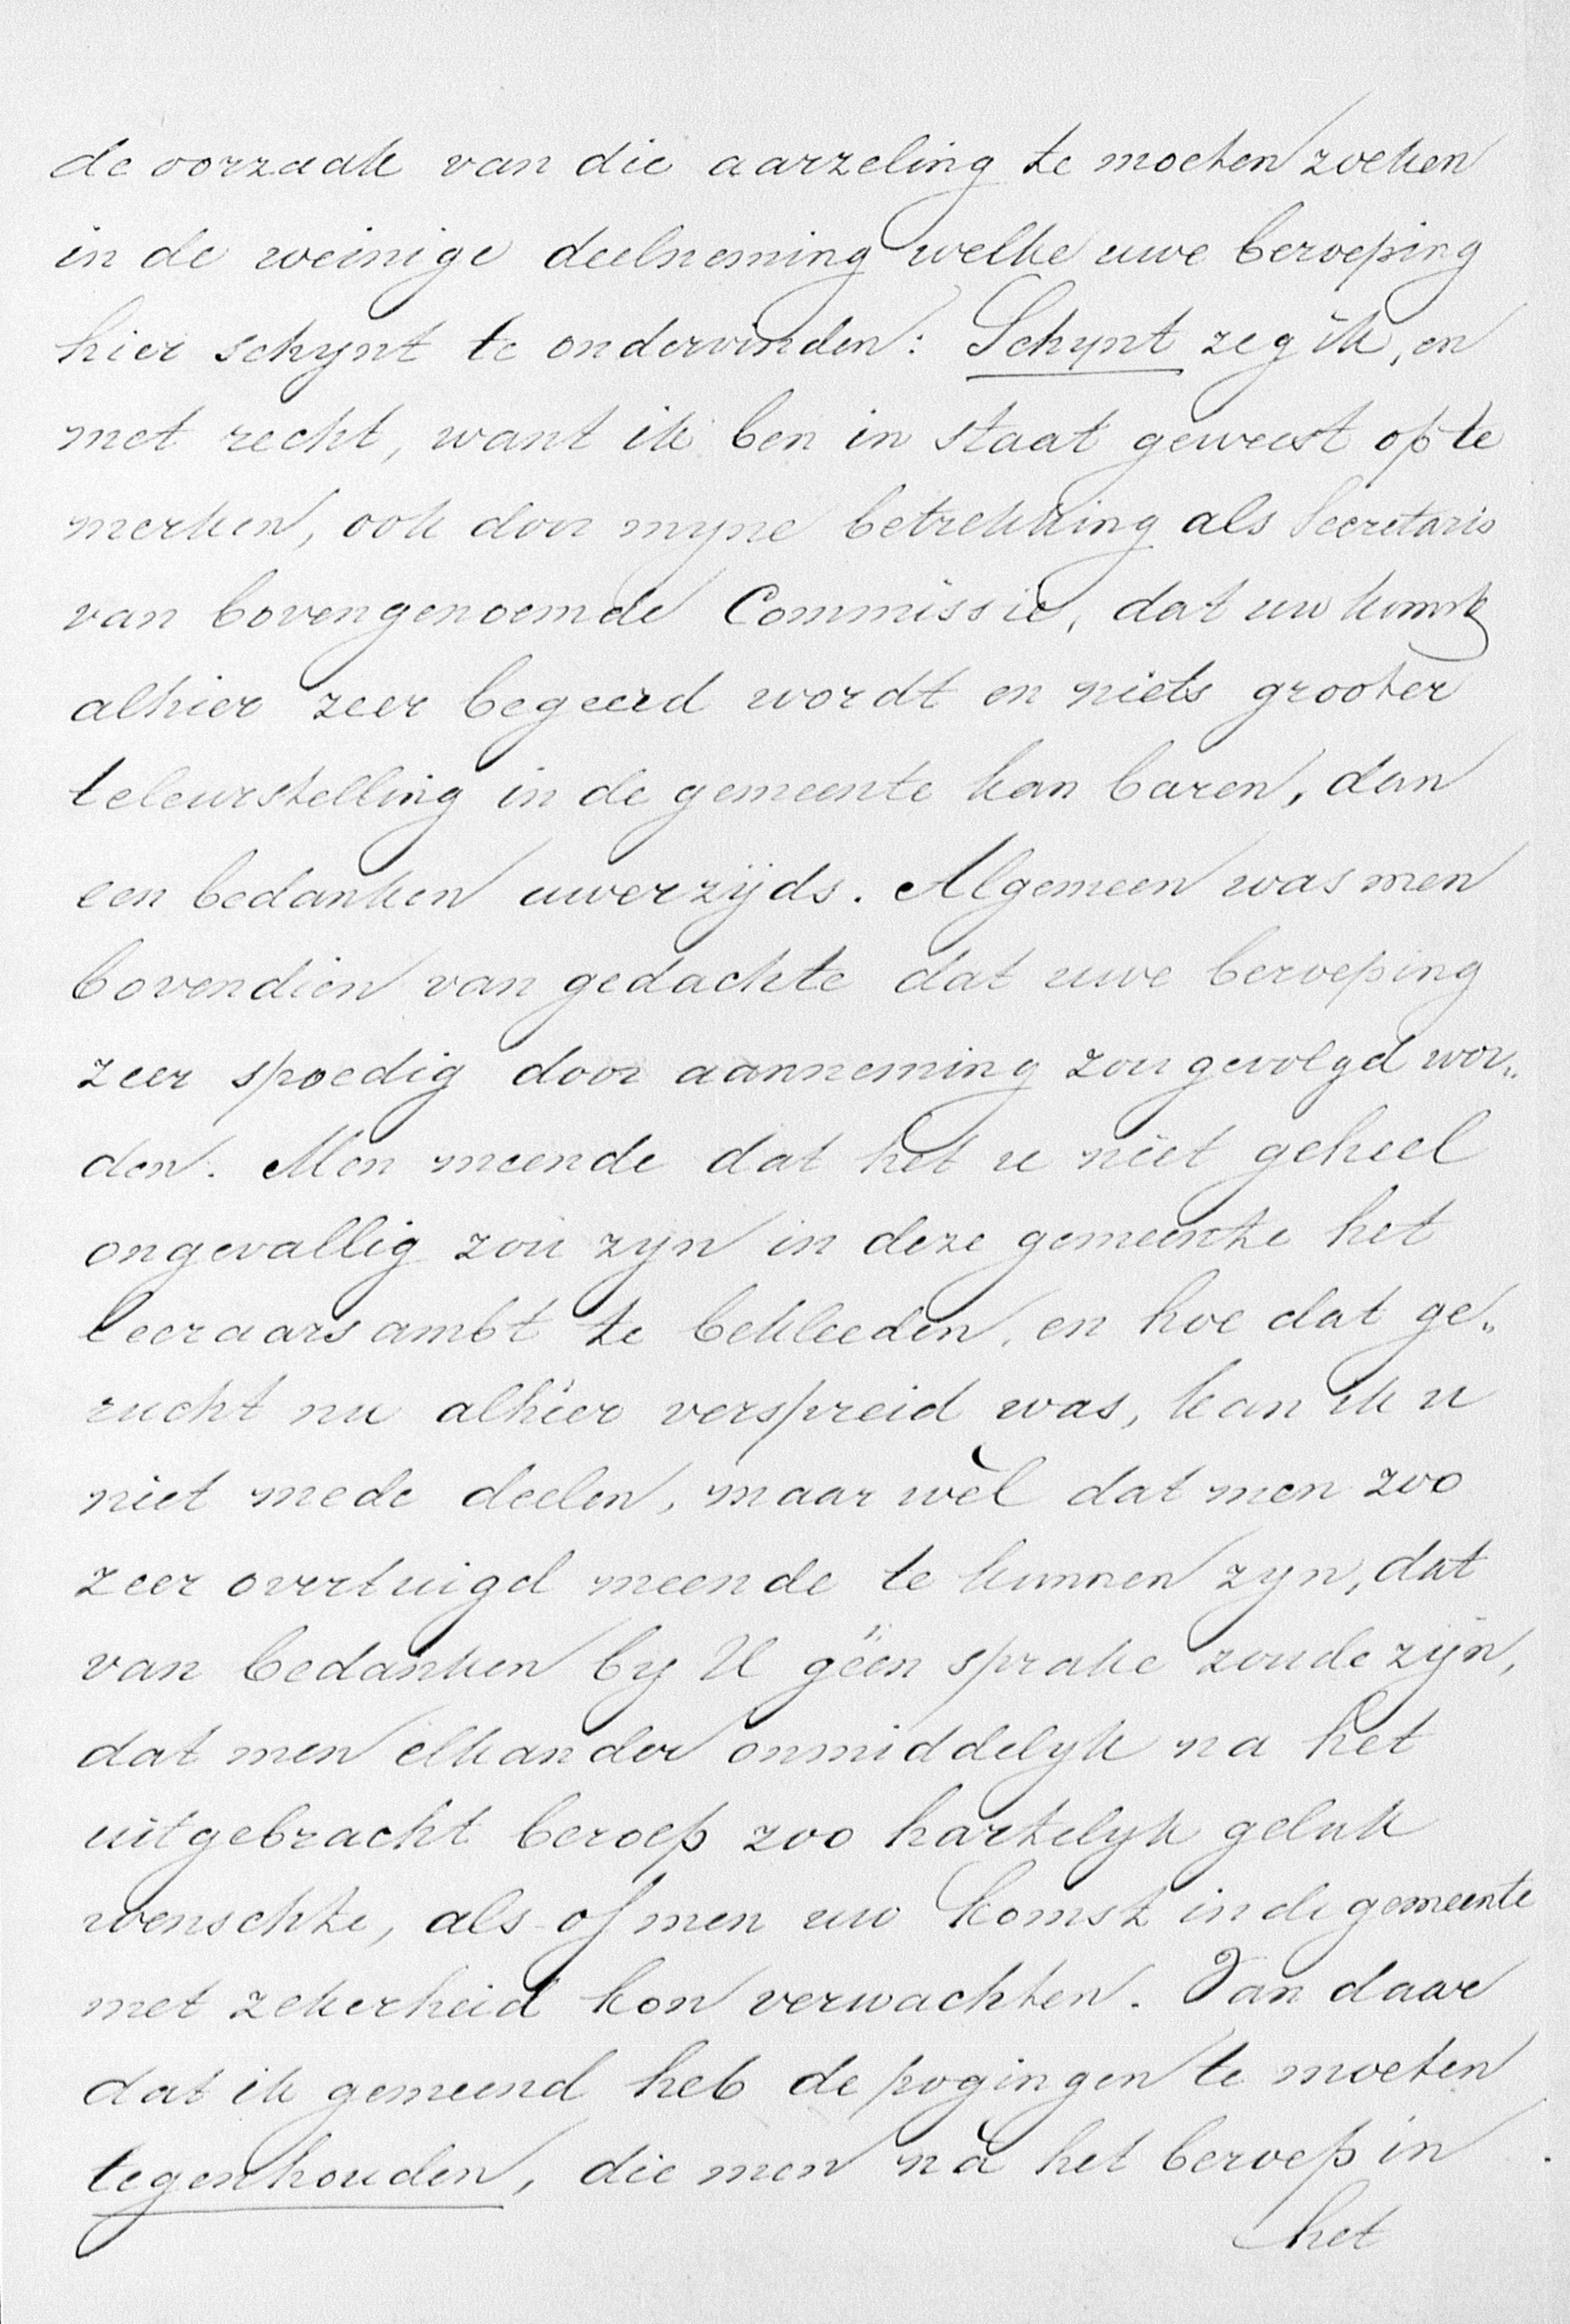 de oorzaak van die aarzeling te moeten zoeken
in de weinige deelneming welke uwe beroeping
hier schynt te ondervinden: Schynt zeg ik, en
met recht, want ik ben in staat geweest op te
merken, ook door myne betrekking als Secretaris
van bovengenoemde Commissie, dat uw komst
alhier zeer begeerd wordt en niets grooter
teleurstelling in de gemeente kan baren, dan
een bedanken uwerzijds. Algemeen was men
bovendien van gedachte dat uwe beroeping
zeer spoedig door aanneming zou gevolgd wor„
den. Men meende dat het u niet geheel
ongevallig zou zyn in deze gemeente het
leeraarsambt te bekleeden, en hoe dat ge„
rucht nu alhier verspreid was, kan ik u
niet mede deelen, maar wèl dat men zoo
zeer overtuigd meende te kunnen zyn, dat
van bedanken by U géén sprake zoude zijn,
dat men elkander onmiddelyk na het
uitgebracht beroep zoo hartelyk geluk
wenschte, als of men uw komst in de gemeente
met zekerheid kon verwachten. Van daar
dat ik gemeend heb de pogingen te moeten
tegenhouden, die men nà het beroep in
het